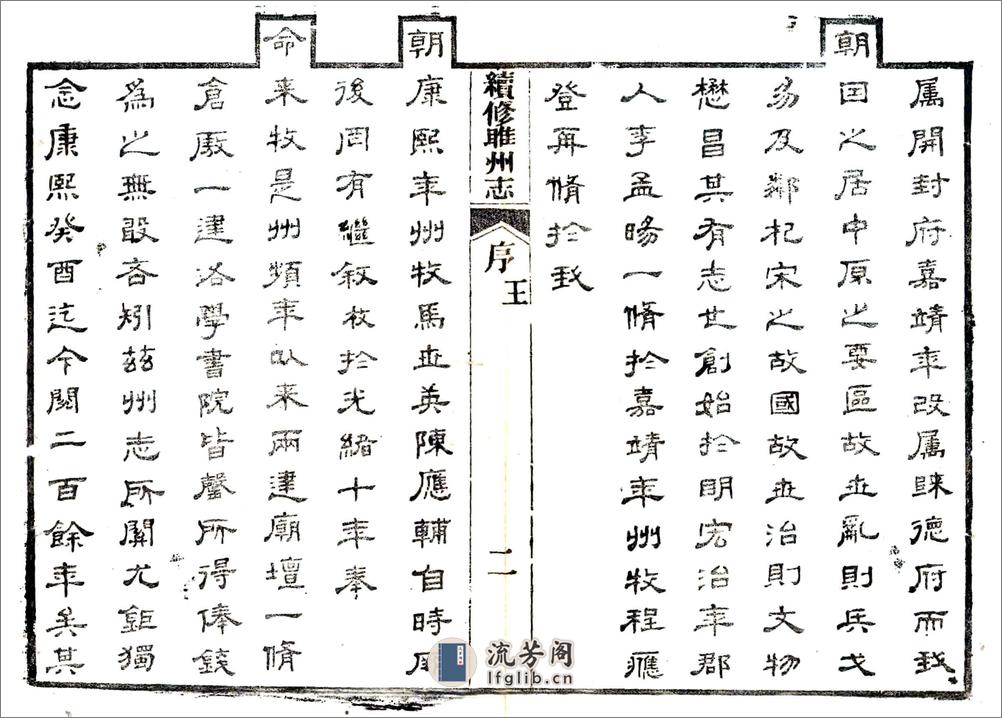 属開封府嘉靖年改属歸德府而我
朝因之居中原之要區故世亂則兵戈
易及鄰杞宋之故國故世治則文物
懋昌其有志也創始於明宏治年郡
人李孟暘一脩於嘉靖年州牧程應
登再脩於我
續修睢州志
序王
二
朝康熙年州牧馬世英陳應輔自時厥
後罔有繼敘枚於光緒十年奉
命来牧是州頻年以来兩建廟壇一脩
倉廒一建洛學書院皆罄所得俸錢
為之無敢吝矧茲州志所關尤鉅獨
念康熙癸酉迄今閱二百餘年矣其
流芳阁
lfglib.cn